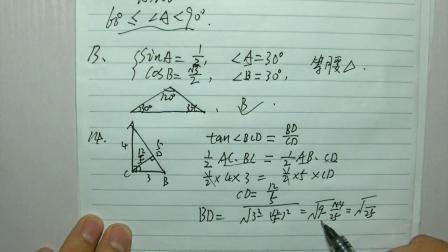 60° ≤ ∠A < 90°
B、 { sinA = 1/2, ∠A = 30°
cosB = √3/2, ∠B = 30°, 等腰△.
120°
30° 30° B ✓.
A
4 12/5 5 D
C 3 B
tan∠BCD = BD/CD
1/2 AC·BC = 1/2 AB·CD
1/2 × 4 × 3 = 1/2 × 5 × CD
CD = 12/5
BD = √3² (12/5)² = √9 144/25 = √ /25